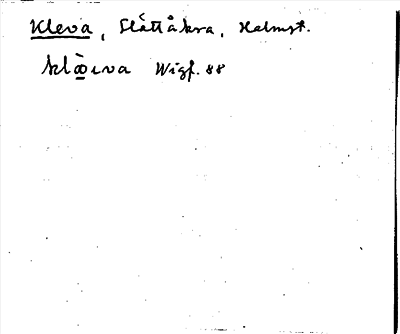 Kleva, Slättåkra, Halmst.
klæ̀ıva Wigf. 88